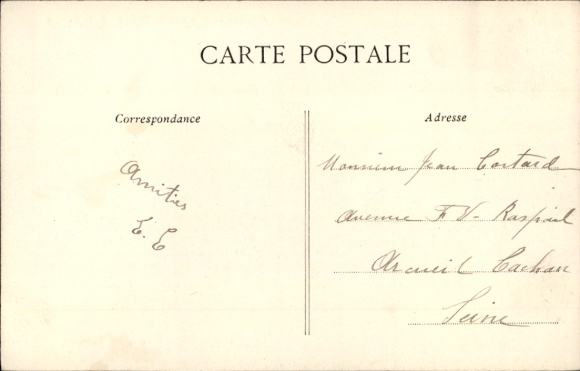 CARTE POSTALE
Correspondance
Amitiés
E. E
Adresse
Monsieur Jean Costard
Avenue F V- Raspail
Arcueil Cachan
Seine